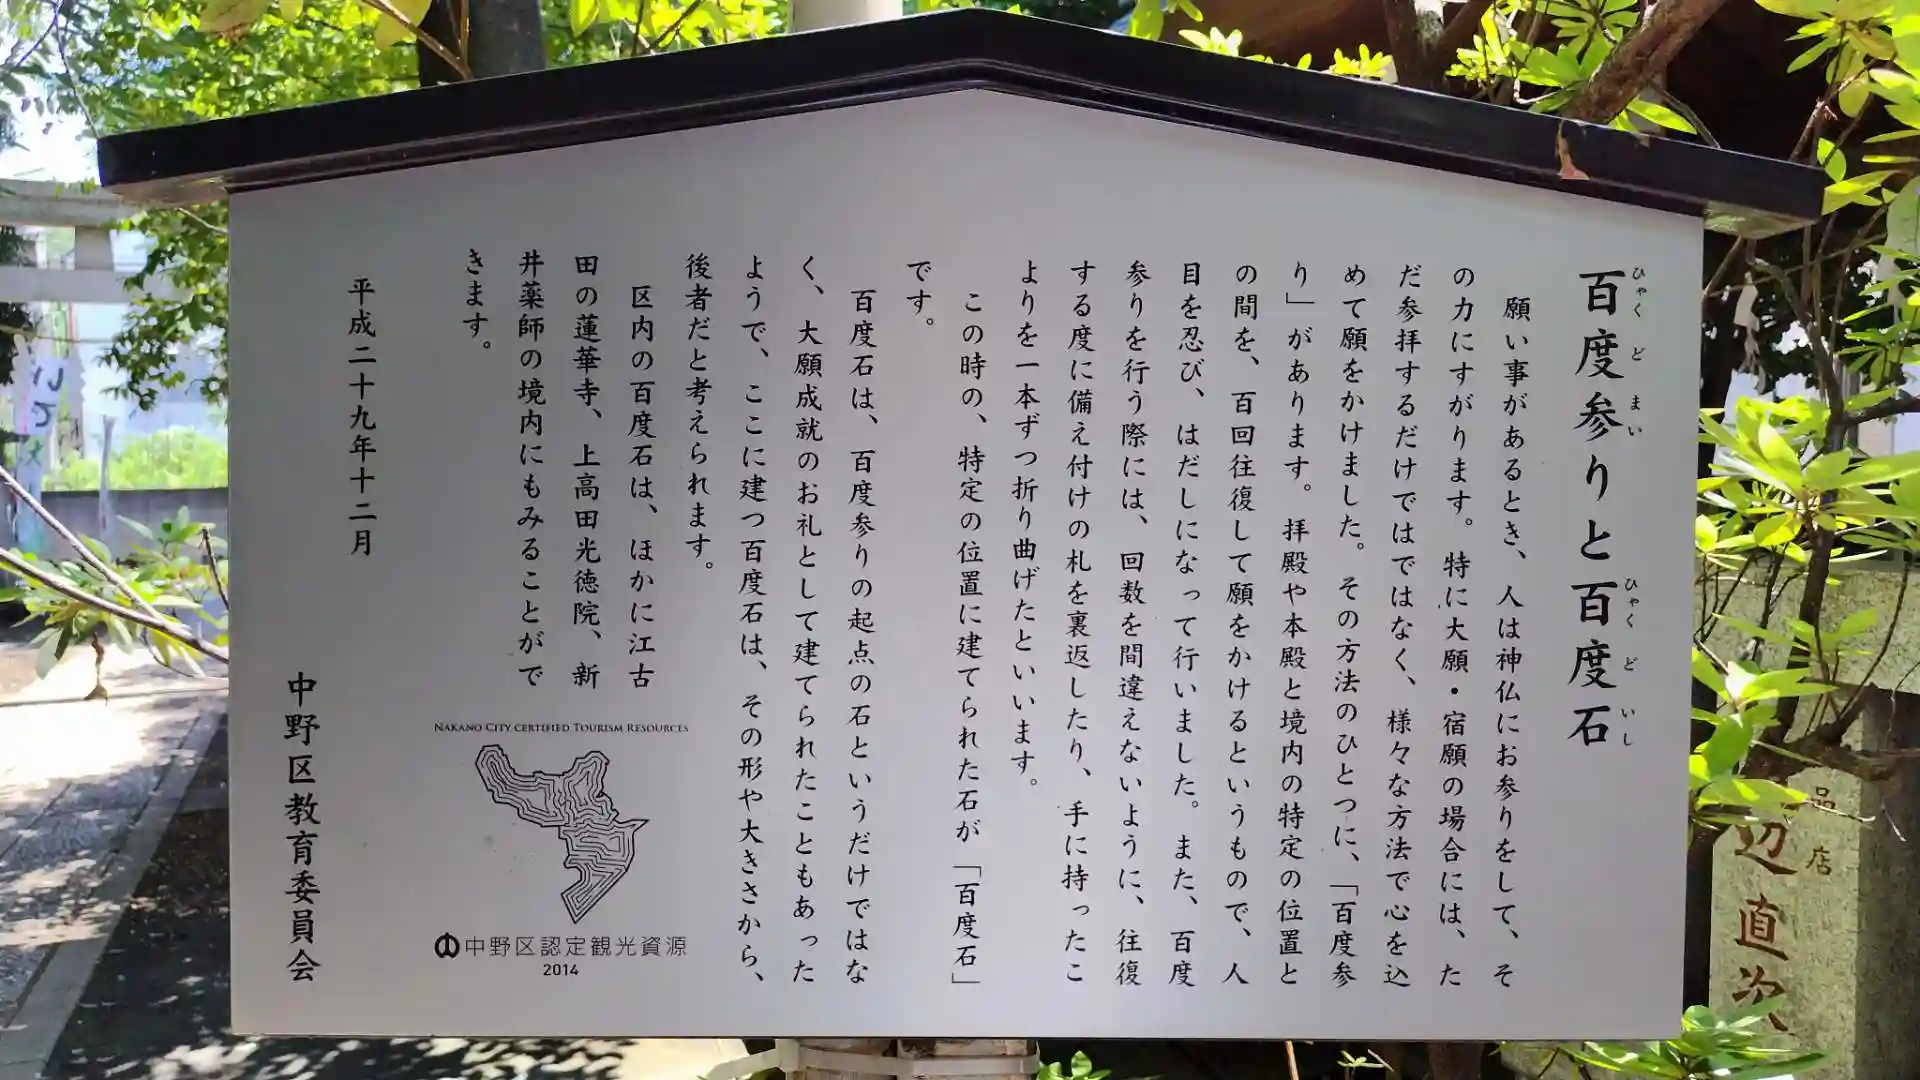 百度参りと百度石
ひゃくどまい
ひゃくどいし
願い事があるとき、人は神仏にお参りをして、そ
の力にすがります。特に大願・宿願の場合には、た
だ参拝するだけではではなく、様々な方法で心を込
めて願をかけました。その方法のひとつに、「百度参
り」があります。拝殿や本殿と境内の特定の位置と
の間を、百回往復して願をかけるというもので、人
目を忍び、はだしになって行いました。また、百度
参りを行う際には、回数を間違えないように、往復
する度に備え付けの札を裏返したり、手に持ったこ
よりを一本ずつ折り曲げたといいます。
この時の、特定の位置に建てられた石が「百度石」
です。
百度石は、百度参りの起点の石というだけではな
く、大願成就のお礼として建てられたこともあった
ようで、ここに建つ百度石は、その形や大きさから、
後者だと考えられます。
区内の百度石は、ほかに江古
田の蓮華寺、上高田光徳院、新
井薬師の境内にもみることがで
きます。
平成二十九年十二月
中野区教育委員会
NAKANO CITY CERTIFIED TOURISM RESOURCES
中野区認定観光資源
2014
店
辺直次